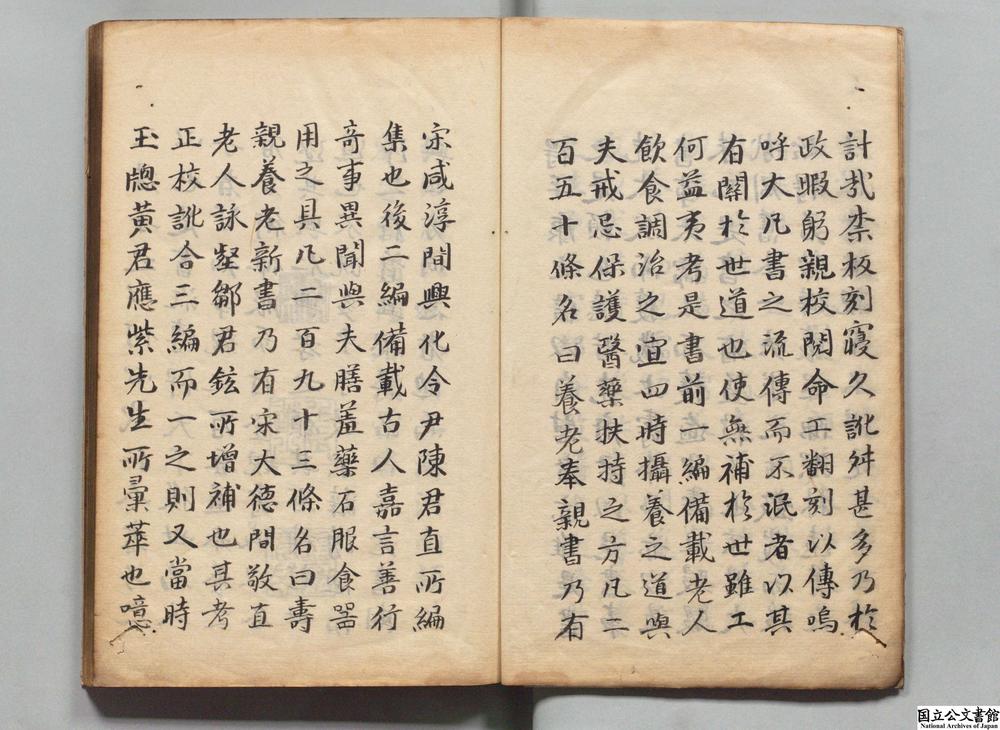 計哉柰板刻寖久訛舛甚多乃於
政暇躬親校閱命工翻刻以傳嗚
呼大凡書之流傳而不泯者以其
有關於世道也使無補於世雖工
何益夷考是書前一編備載老人
飲食調治之宜四時攝養之道與
夫戒忌保護醫藥扶持之方凡二
百五十條名曰養老奉親書乃有
宋咸淳間興化令尹陳君直所編
集也後二編備載古人嘉言善行
奇事異聞與夫膳羞藥石服食器
用之具凡二百九十三條名曰壽
親養老新書乃有宋大德間敬直
老人詠壑鄒君鉉所增補也其考
正校訛合三編而一之則又當時
玉牕黃君應紫先生所彙萃也噫
国立公文書館
National Archives of Japan